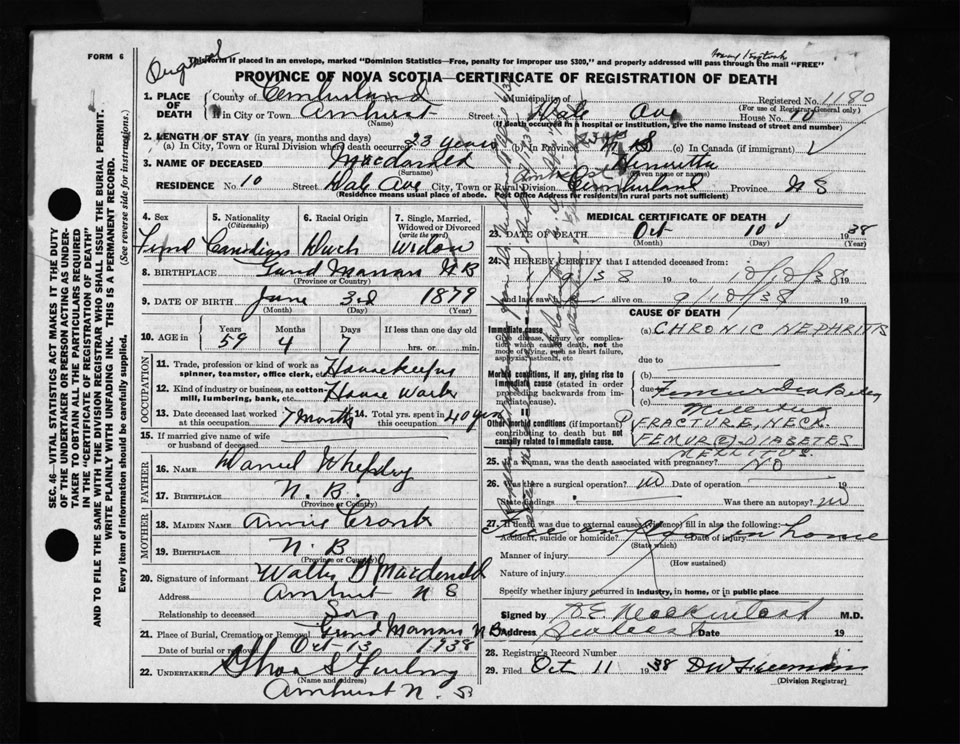 FORM 6
This form if placed in an envelope, marked "Dominion Statistics—Free, penalty for improper use $300," and properly addressed will pass through the mail "FREE"
PROVINCE OF NOVA SCOTIA—CERTIFICATE OF REGISTRATION OF DEATH
1. PLACE OF DEATH
County of Cumberland Municipality of Registered No. 1180
(For use of Registrar-General only)
If in City or Town Amherst Street Dale Ave House No. 10
(Name) (If death occurred in a hospital or institution, give the name instead of street and number)
2. LENGTH OF STAY (in years, months and days)
(a) In City, Town or Rural Division where death occurred 23 years (b) in Province (c) in Canada (if immigrant)
3. NAME OF DECEASED Macdonald Henrietta
(Surname) (Given name or names)
RESIDENCE No. 10 Street Dale Ave City, Town or Rural Division Cumberland Province N S
(Residence means usual place of abode. Post Office Address for residents in rural parts not sufficient)
4. Sex
5. Nationality (Citizenship)
6. Racial Origin
7. Single, Married, Widowed or Divorced (write the word)
Canadian Dutch Widow
8. BIRTHPLACE Grand Manan N B
(Province or Country)
9. DATE OF BIRTH June 3rd 1879
(Month) (Day) (Year)
10. AGE in Years Months Days If less than one day old
59 4 7 hrs. or min.
OCCUPATION
11. Trade, profession or kind of work as spinner, teamster, office clerk, etc. Housekeeping
12. Kind of industry or business, as cotton-mill, lumbering, bank, etc. House Work
13. Date deceased last worked at this occupation 7 months 14. Total yrs. spent in this occupation 40 yrs
15. If married give name of wife or husband of deceased
FATHER
16. NAME Daniel Whepley
17. BIRTHPLACE N. B.
(Province or Country)
MOTHER
18. MAIDEN NAME Annie Cronk
19. BIRTHPLACE N. B
(Province or Country)
20. Signature of informant Walter D Macdonald
Address Amherst N S
Relationship to deceased Son
21. Place of Burial, Cremation or Removal Grand Manan N B
Date of burial or removal Oct-13 1938
22. UNDERTAKER
(Name and Address)
Amherst N. S
MEDICAL CERTIFICATE OF DEATH
23. DATE OF DEATH Oct 10 1938
(Month) (Day) (Year)
24. I HEREBY CERTIFY that I attended deceased from:
/9/38 to 10/10/38
and last saw alive on 9/10/38 19
CAUSE OF DEATH
Immediate cause
Give disease, injury or complication which caused death, not the mode of dying, such as heart failure, asphyxia, asthenia, etc
(a) CHRONIC NEPHRITIS
due to
Morbid conditions, if any, giving rise to immediate cause (stated in order proceeding backwards from immediate cause).
(b)
due to
(c)
II
Other morbid conditions (if important) contributing to death but not causally related to immediate cause.
FRACTURE, NECK
FEMUR DIABETES
MELLITUS.
25. If a woman, was the death associated with pregnancy? NO
26. Was there a surgical operation? no Date of operation 19
State findings Was there an autopsy? no
27. If death was due to external causes (violence) fill in also the following:
Accident, suicide or homicide? Date of injury
(State which)
in home
Manner of injury
(How sustained)
Nature of injury
Specify whether injury occurred in industry, in home, or in public place
Signed by M.D.
Address Date 19
28. Registrar's Record Number
29. Filed Oct 11 1938
(Division Registrar)
SEC. 46—VITAL STATISTICS ACT MAKES IT THE DUTY
OF THE UNDERTAKER OR PERSON ACTING AS UNDER-
TAKER TO OBTAIN ALL THE PARTICULARS REQUIRED
IN THE "CERTIFICATE OF REGISTRATION OF DEATH"
AND TO FILE THE SAME WITH THE DIVISION REGISTRAR WHO SHALL ISSUE THE BURIAL PERMIT.
WRITE PLAINLY WITH UNFADING INK. THIS IS A PERMANENT RECORD.
Every item of information should be carefully supplied. (See reverse side for instructions.)